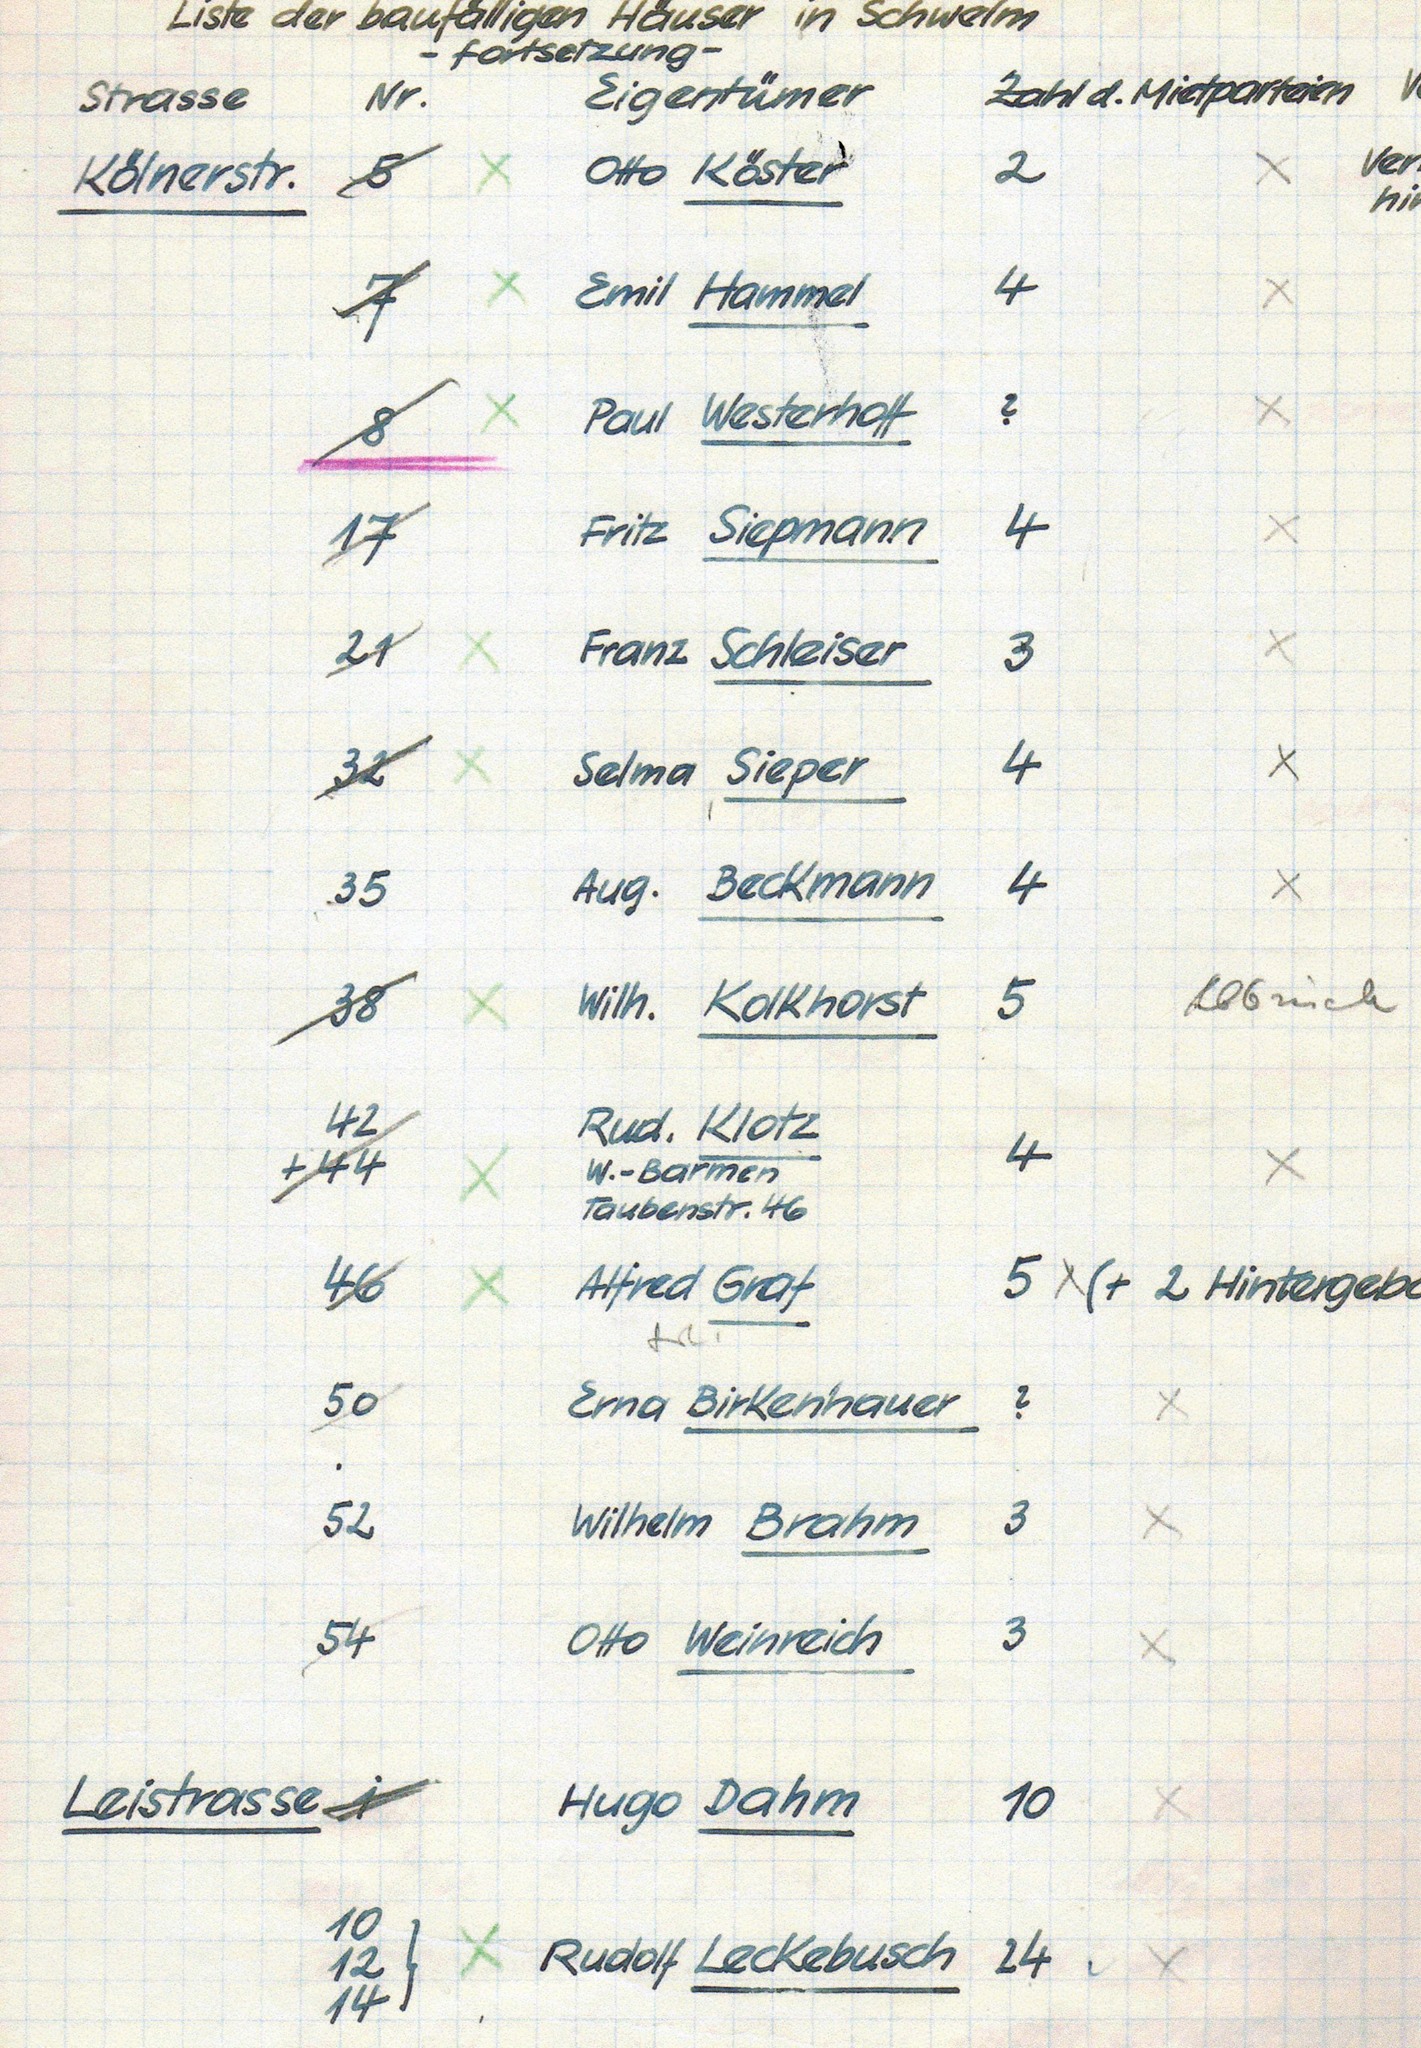 Liste der baufälligen Häuser in Schwelm
- Fortsetzung -
Strasse Nr. Eigentümer Zahl d. Mietparteien
Kölnerstr. 5 × Otto Köster 2 ×
7 × Emil Hammel 4 ×
8 × Paul Westerhoff ? ×
17 Fritz Siepmann 4 ×
21 × Franz Schleiser 3 ×
32 × Selma Sieper 4 ×
35 Aug. Beckmann 4 ×
38 × Wilh. Kolkhorst 5 Abbruch
42 Rud. Klotz
+ 44 × W.-Barmen 4 ×
Taubenstr. 46
46 × Alfred Graf 5 × (+ 2 Hintergebä
50 Erna Birkenhauer ? ×
52 Wilhelm Brahm 3 ×
54 Otto Weinreich 3 ×
Leistrasse 1 Hugo Dahm 10 ×
10
12 } × Rudolf Leckebusch 24 ×
14